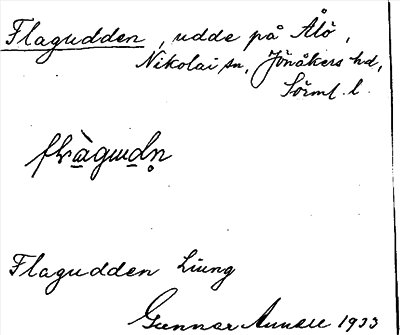 Flagudden, udde på Ålö,
Nikolai sn, Jönåkers hd,
Sörml. l.
Flagudden Liung
Gunnar 1933